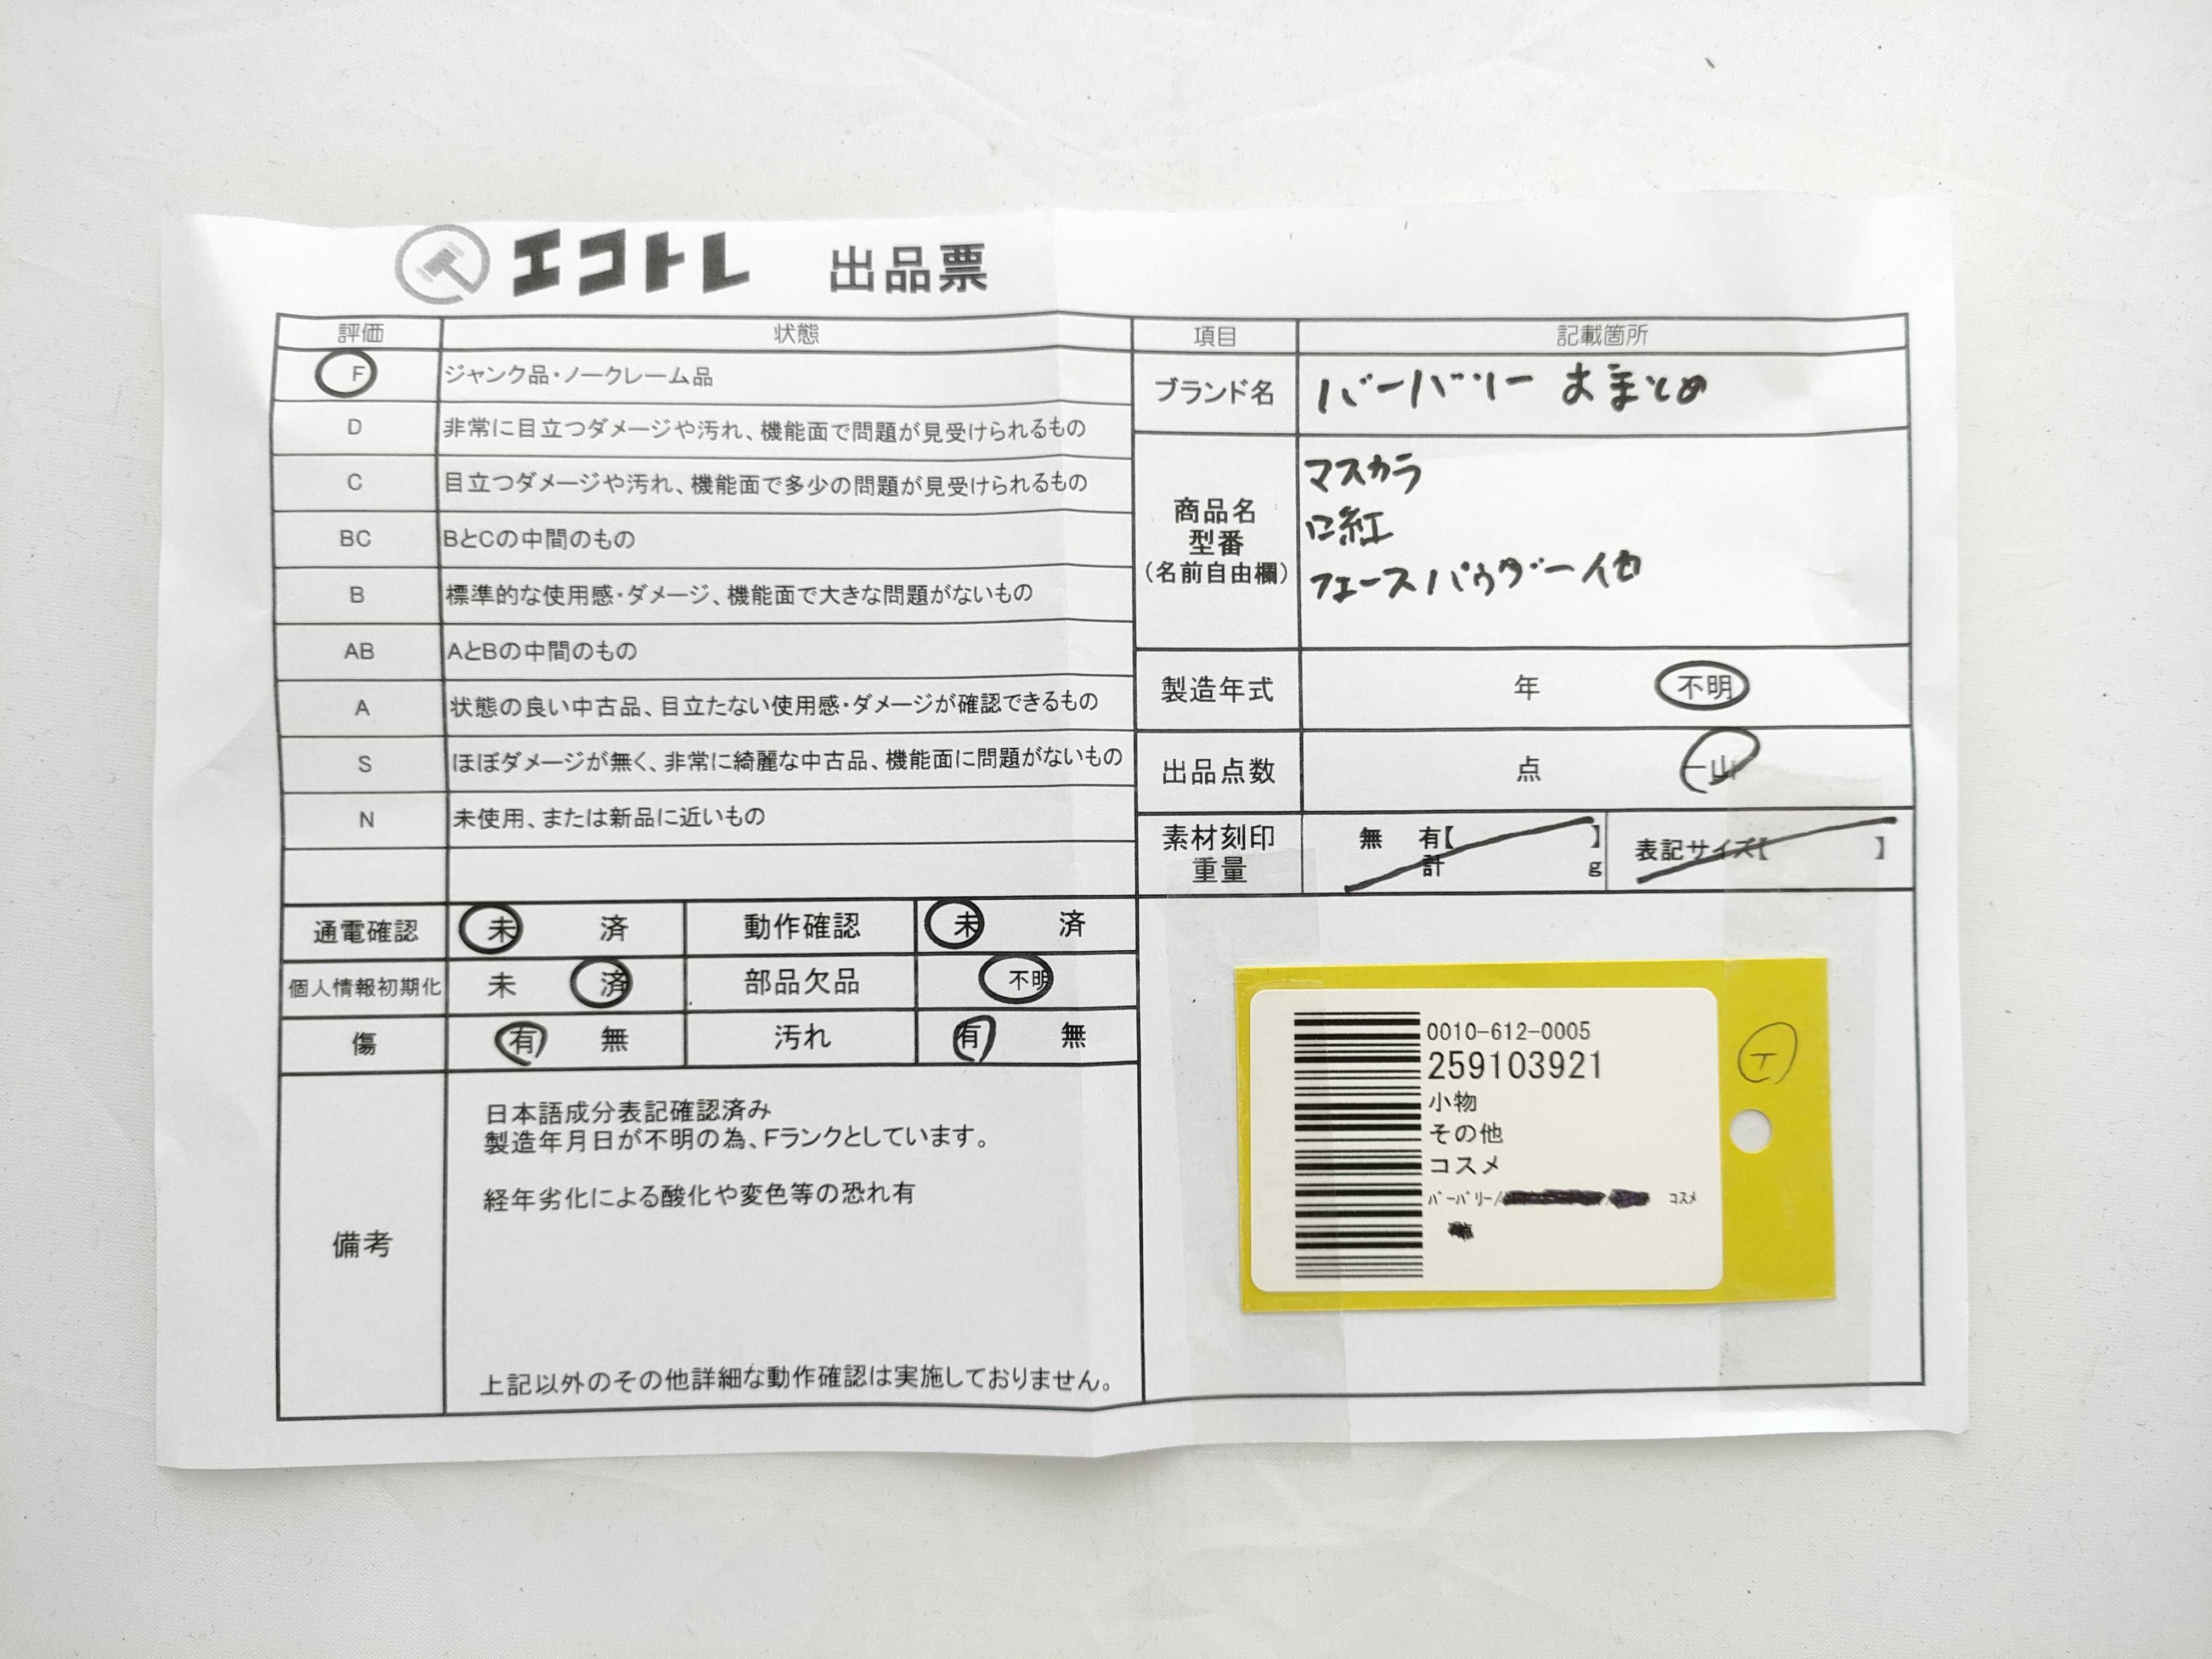 エコトレ 出品票
評価 状態
F ジャンク品・ノークレーム品
D 非常に目立つダメージや汚れ、機能面で問題が見受けられるもの
C 目立つダメージや汚れ、機能面で多少の問題が見受けられるもの
BC BとCの中間のもの
B 標準的な使用感・ダメージ、機能面で大きな問題がないもの
AB AとBの中間のもの
A 状態の良い中古品、目立たない使用感・ダメージが確認できるもの
S ほぼダメージが無く、非常に綺麗な中古品、機能面に問題がないもの
N 未使用、または新品に近いもの
通電確認 未 済 動作確認 未 済
個人情報初期化 未 済 部品欠品 不明
傷 有 無 汚れ 有 無
備考
日本語成分表記確認済み
製造年月日が不明の為、Fランクとしています。
経年劣化による酸化や変色等の恐れ有
上記以外のその他詳細な動作確認は実施しておりません。
項目 記載箇所
ブランド名 バーバリー おまとめ
商品名
型番
(名前自由欄)
マスカラ
口紅
フェースパウダー他
製造年式 年 不明
出品点数 点 一山
素材刻印 無 有【 】 表記サイズ【 】
重量 計 g
0010-612-0005
259103921
小物
その他
コスメ
バーバリー/ コスメ
エ